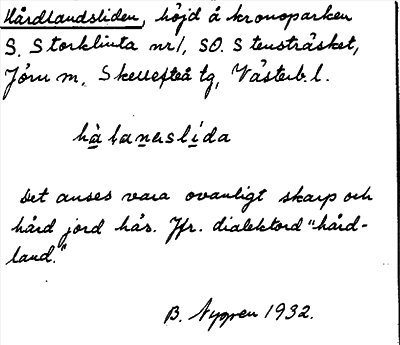 Hårdlandsliden, höjd å kronoparken
S. Storklinta nr 1, SO. Stensträsket,
Jörn sn, Skellefteå tg, Västerb. l.
hàlanaslída
Det anses vara ovanligt skarp och
hård jord här. Jfr. dialektord "hård-
land."
B. Nygren 1932.